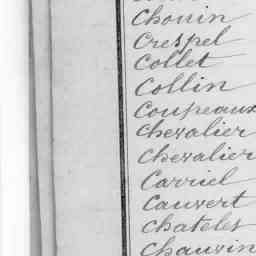 Chouin
Crespel
Collet
Collin
Coupeaux
Chevalier
Chevalier
Carriel
Cauvert
Chatelet
Chauvin